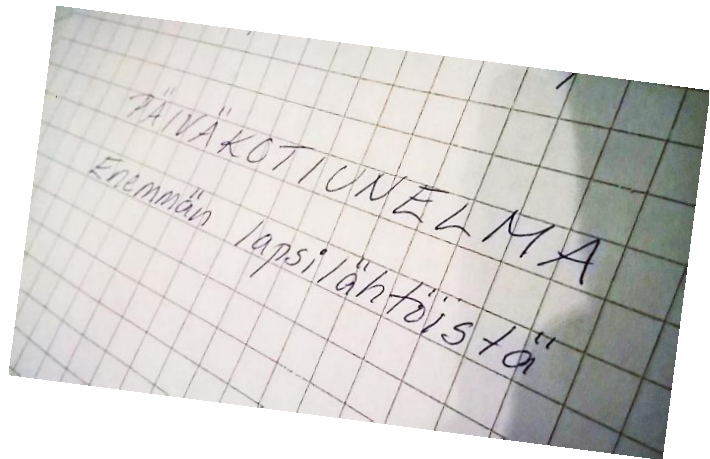 PÄIVÄKOTIUNELMA
Enemmän lapsilähtöistä